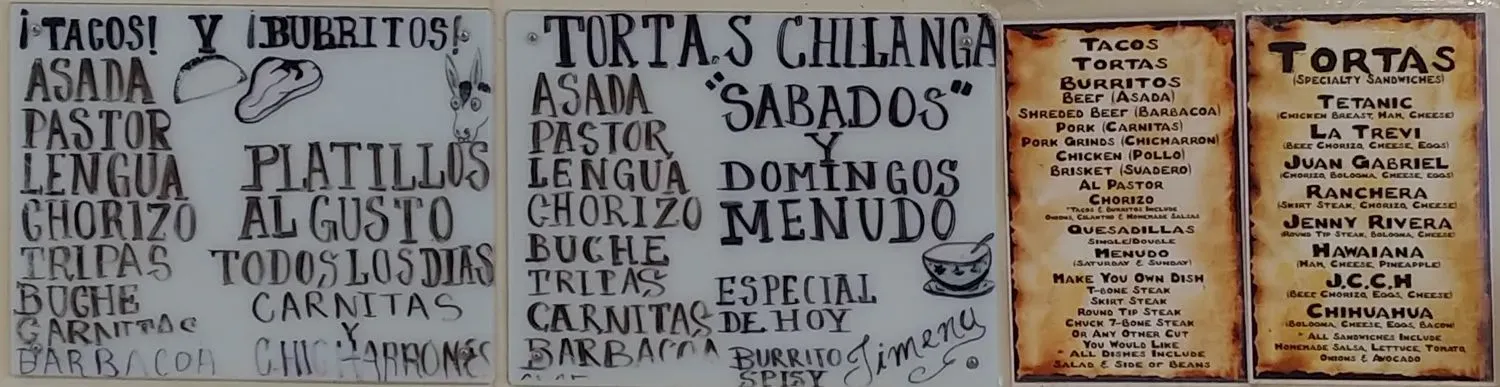 ¡TACOS! Y ¡BURRITOS!
ASADA
PASTOR
LENGUA
CHORIZO
TRIPAS
BUCHE
CARNITAS
BARBACOA
PLATILLOS
AL GUSTO
TODOS LOS DIAS
CARNITAS
Y
CHICHARRONES
TORTA.S CHILANGA
ASADA
PASTOR
LENGUA
CHORIZO
BUCHE
TRIPAS
CARNITAS
BARBACOA
"SABADOS"
Y
DOMINGOS
MENUDO
ESPECIAL
DE HOY
BURRITO
SPISY
Jimeny
TACOS
TORTAS
BURRITOS
BEEF (ASADA)
SHREDED BEEF (BARBACOA)
PORK (CARNITAS)
PORK GRINDS (CHICHARRON)
CHICKEN (POLLO)
BRISKET (SUADERO)
AL PASTOR
CHORIZO
*TACOS & BURRITOS INCLUDE
ONIONS, CILANTRO & HOMEMADE SALSAS
QUESADILLAS
SINGLE/DOUBLE
MENUDO
(SATURDAY & SUNDAY)
MAKE YOUR OWN DISH
T-BONE STEAK
SKIRT STEAK
ROUND TIP STEAK
CHUCK 7-BONE STEAK
OR ANY OTHER CUT
YOU WOULD LIKE
*ALL DISHES INCLUDE
SALAD & SIDE OF BEANS
TORTAS
(SPECIALTY SANDWICHES)
TETANIC
(CHICKEN BREAST, HAM, CHEESE)
LA TREVI
(BEEF CHORIZO, CHEESE, EGGS)
JUAN GABRIEL
(CHORIZO, BOLOGNA, CHEESE, EGGS)
RANCHERA
(SKIRT STEAK, CHORIZO, CHEESE)
JENNY RIVERA
(ROUND TIP STEAK, BOLOGNA, CHEESE)
HAWAIANA
(HAM, CHEESE, PINEAPPLE)
J.C.C.H
(BEEF CHORIZO, EGGS, CHEESE)
CHIHUAHUA
(BOLOGNA, CHEESE, EGGS, BACON)
ALL SANDWICHES INCLUDE
HOMEMADE SALSA, LETTUCE, TOMATO,
ONIONS & AVOCADO